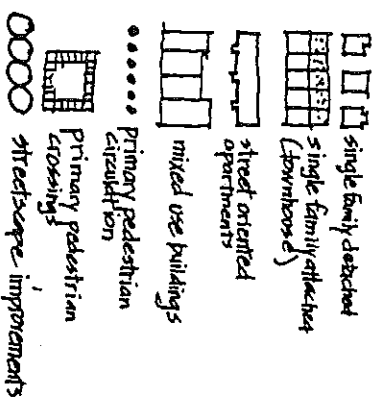 single family detached
single family attached
(townhouse)
street oriented
apartments
mixed use buildings
primary pedestrian
circulation
primary pedestrian
crossings
streetscape improvements